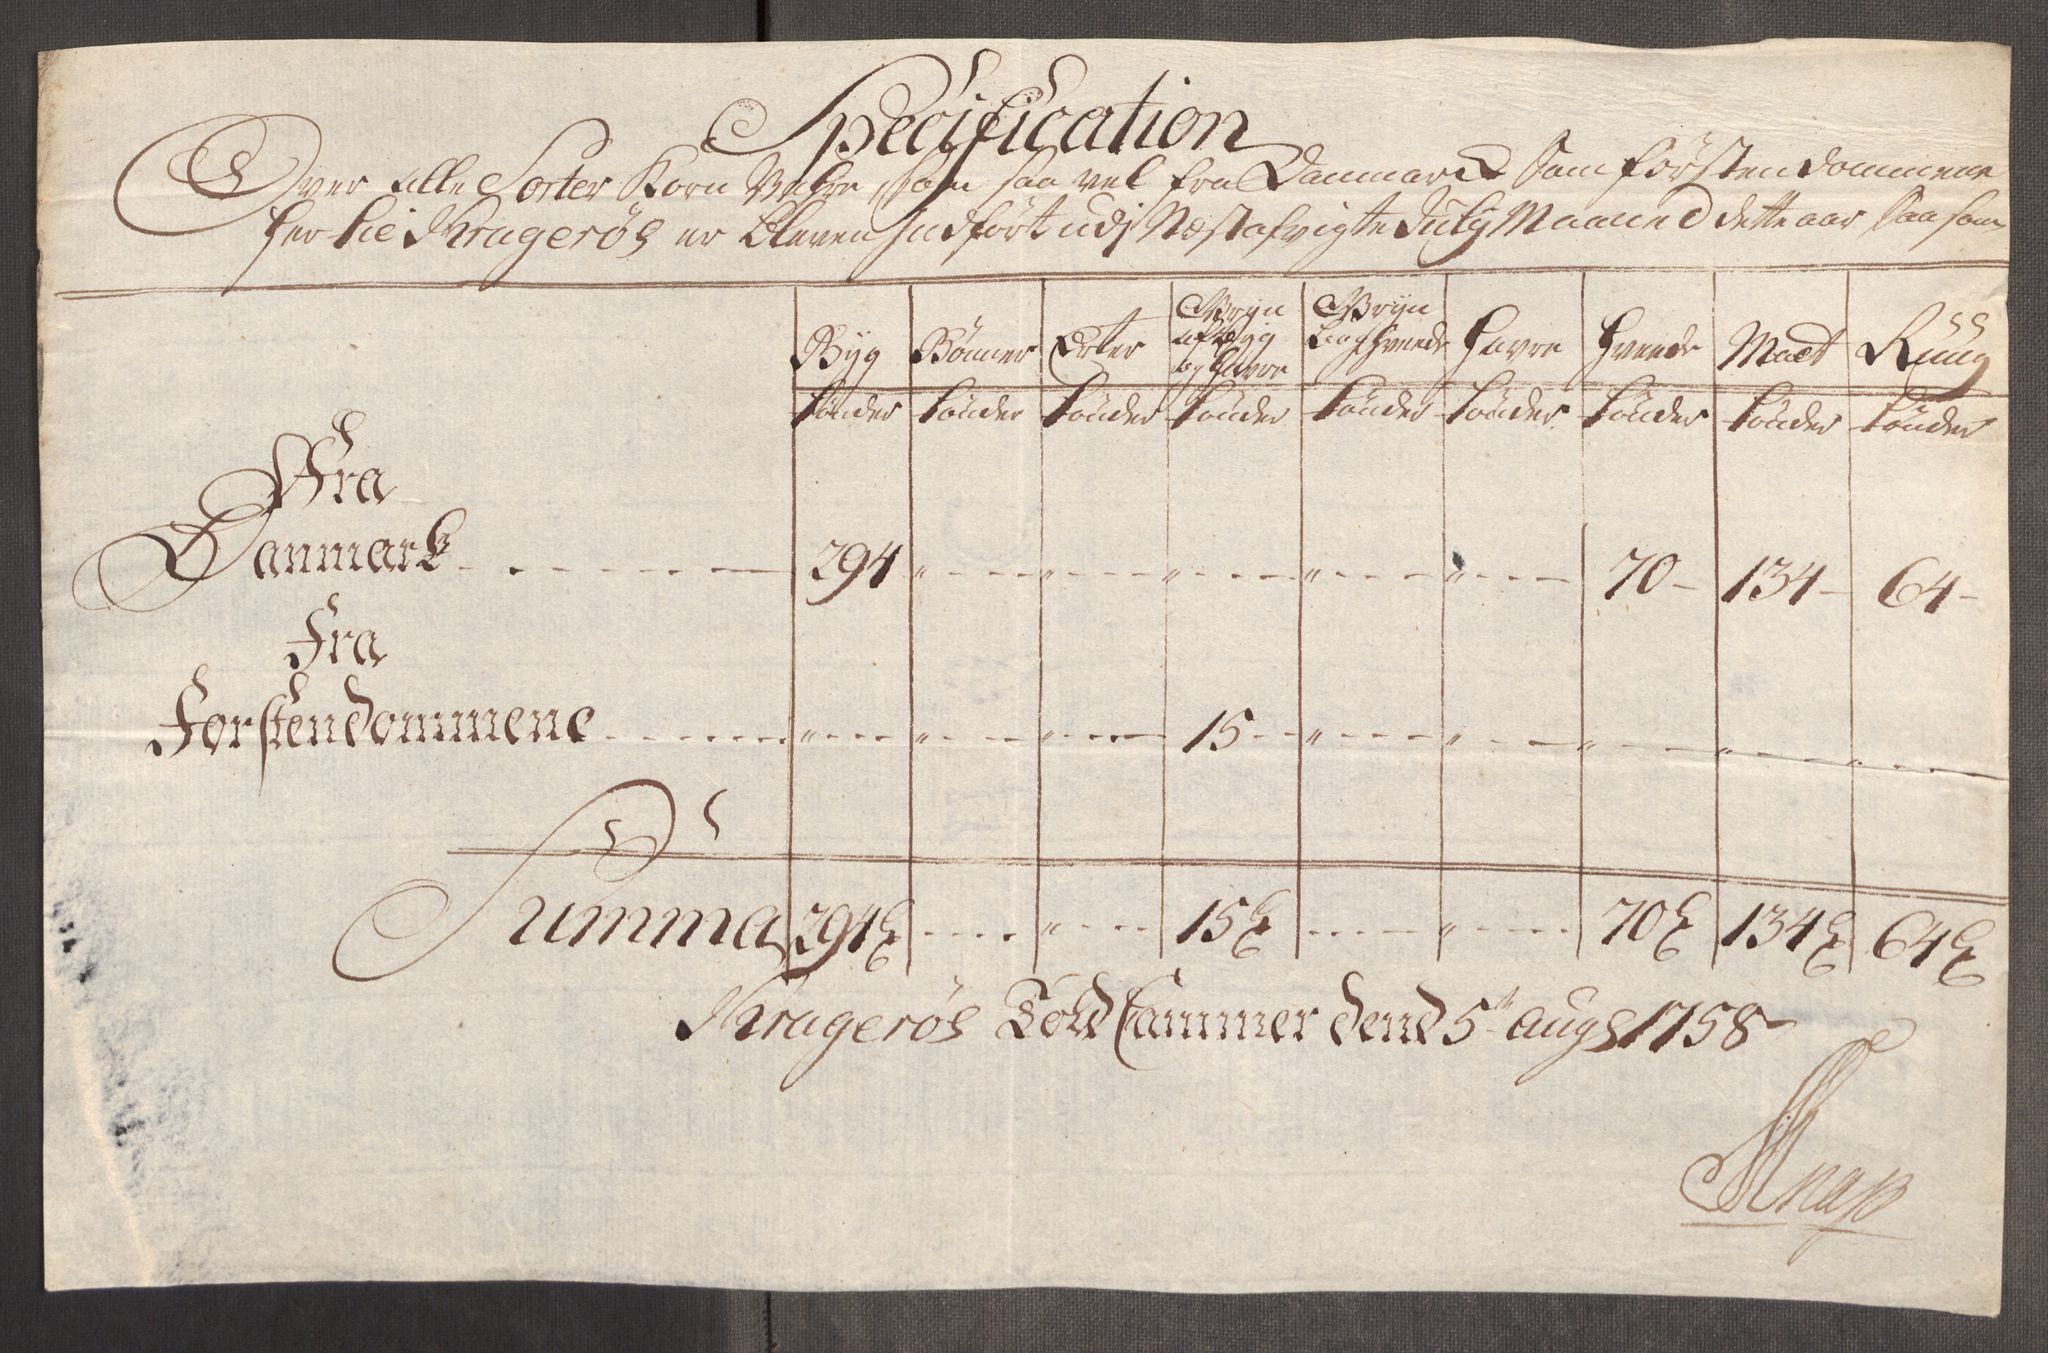 Specification
Over alle Sorter Korn Vahre, som saa vel fra Danmarck Som förstendommene
her til Kragerös er bleven Indfört udj Næstafvigte July Maaned dette aar, Saasom
Byg Bönner Erter Gryn af Byg og Havre Gryn Bog hveede Havre hveede Malt Rüug
tönder tönder tönder tönder tönder tönder tönder tönder tönder
Fra
Danmark 294 70 134 64
Fra
Forstendommene 15
Summa 294 15 70 134 64
Kragerös Told Cammer dend 5te augs 1758
Knap